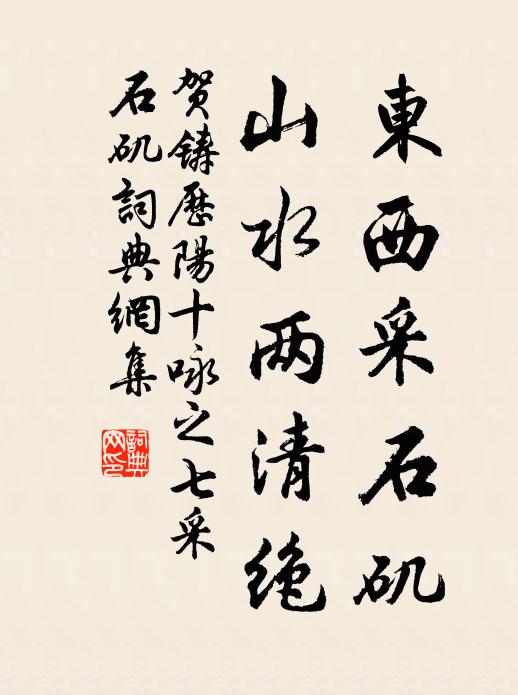 東西采石矶
山水两清绝
贺鑄歷陽十咏之七采
石矶詞典網集
詞典网印